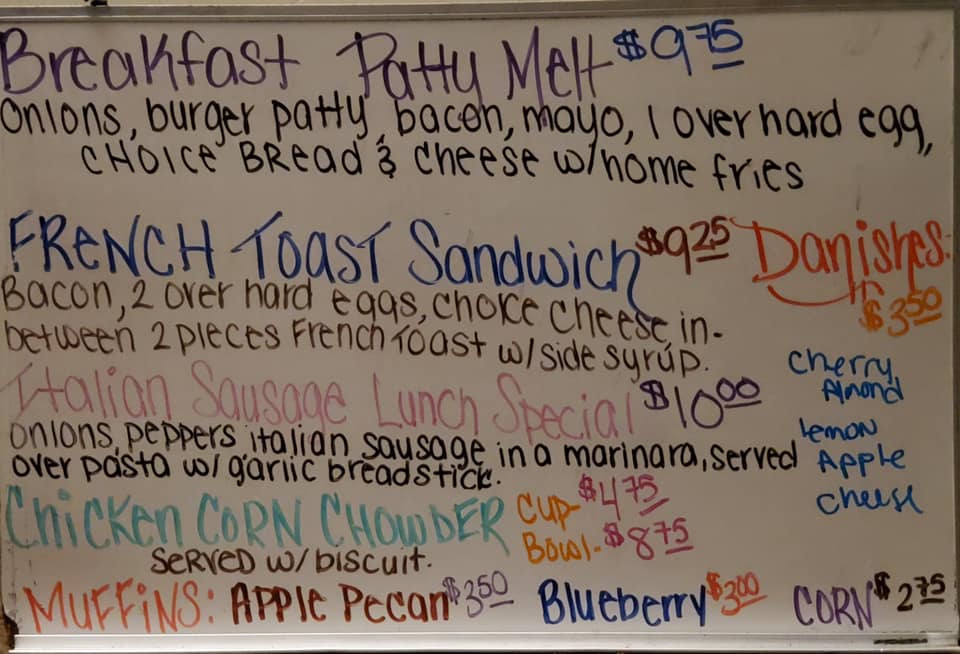 Breakfast Patty Melt $9.75
onions, burger patty, bacon, mayo, 1 over hard egg,
CHOICE BREAD & cheese w/home fries
FRENCH TOAST Sandwich $9.25
Bacon, 2 over hard eggs, choice cheese, in-
between 2 pieces French Toast w/side syrup.
Danishes:
$3.50
cherry
Almond
lemon
Apple
cheese
Italian Sausage Lunch Special $10.00
onions, peppers italian sausage in a marinara, served
over pasta w/ garlic breadstick.
Chicken CORN CHOWDER
SERVED w/ biscuit.
Cup- $4.75
Bowl- $8.75
MUFFINS: APPLE Pecan $3.50 Blueberry $3.00 CORN $2.75